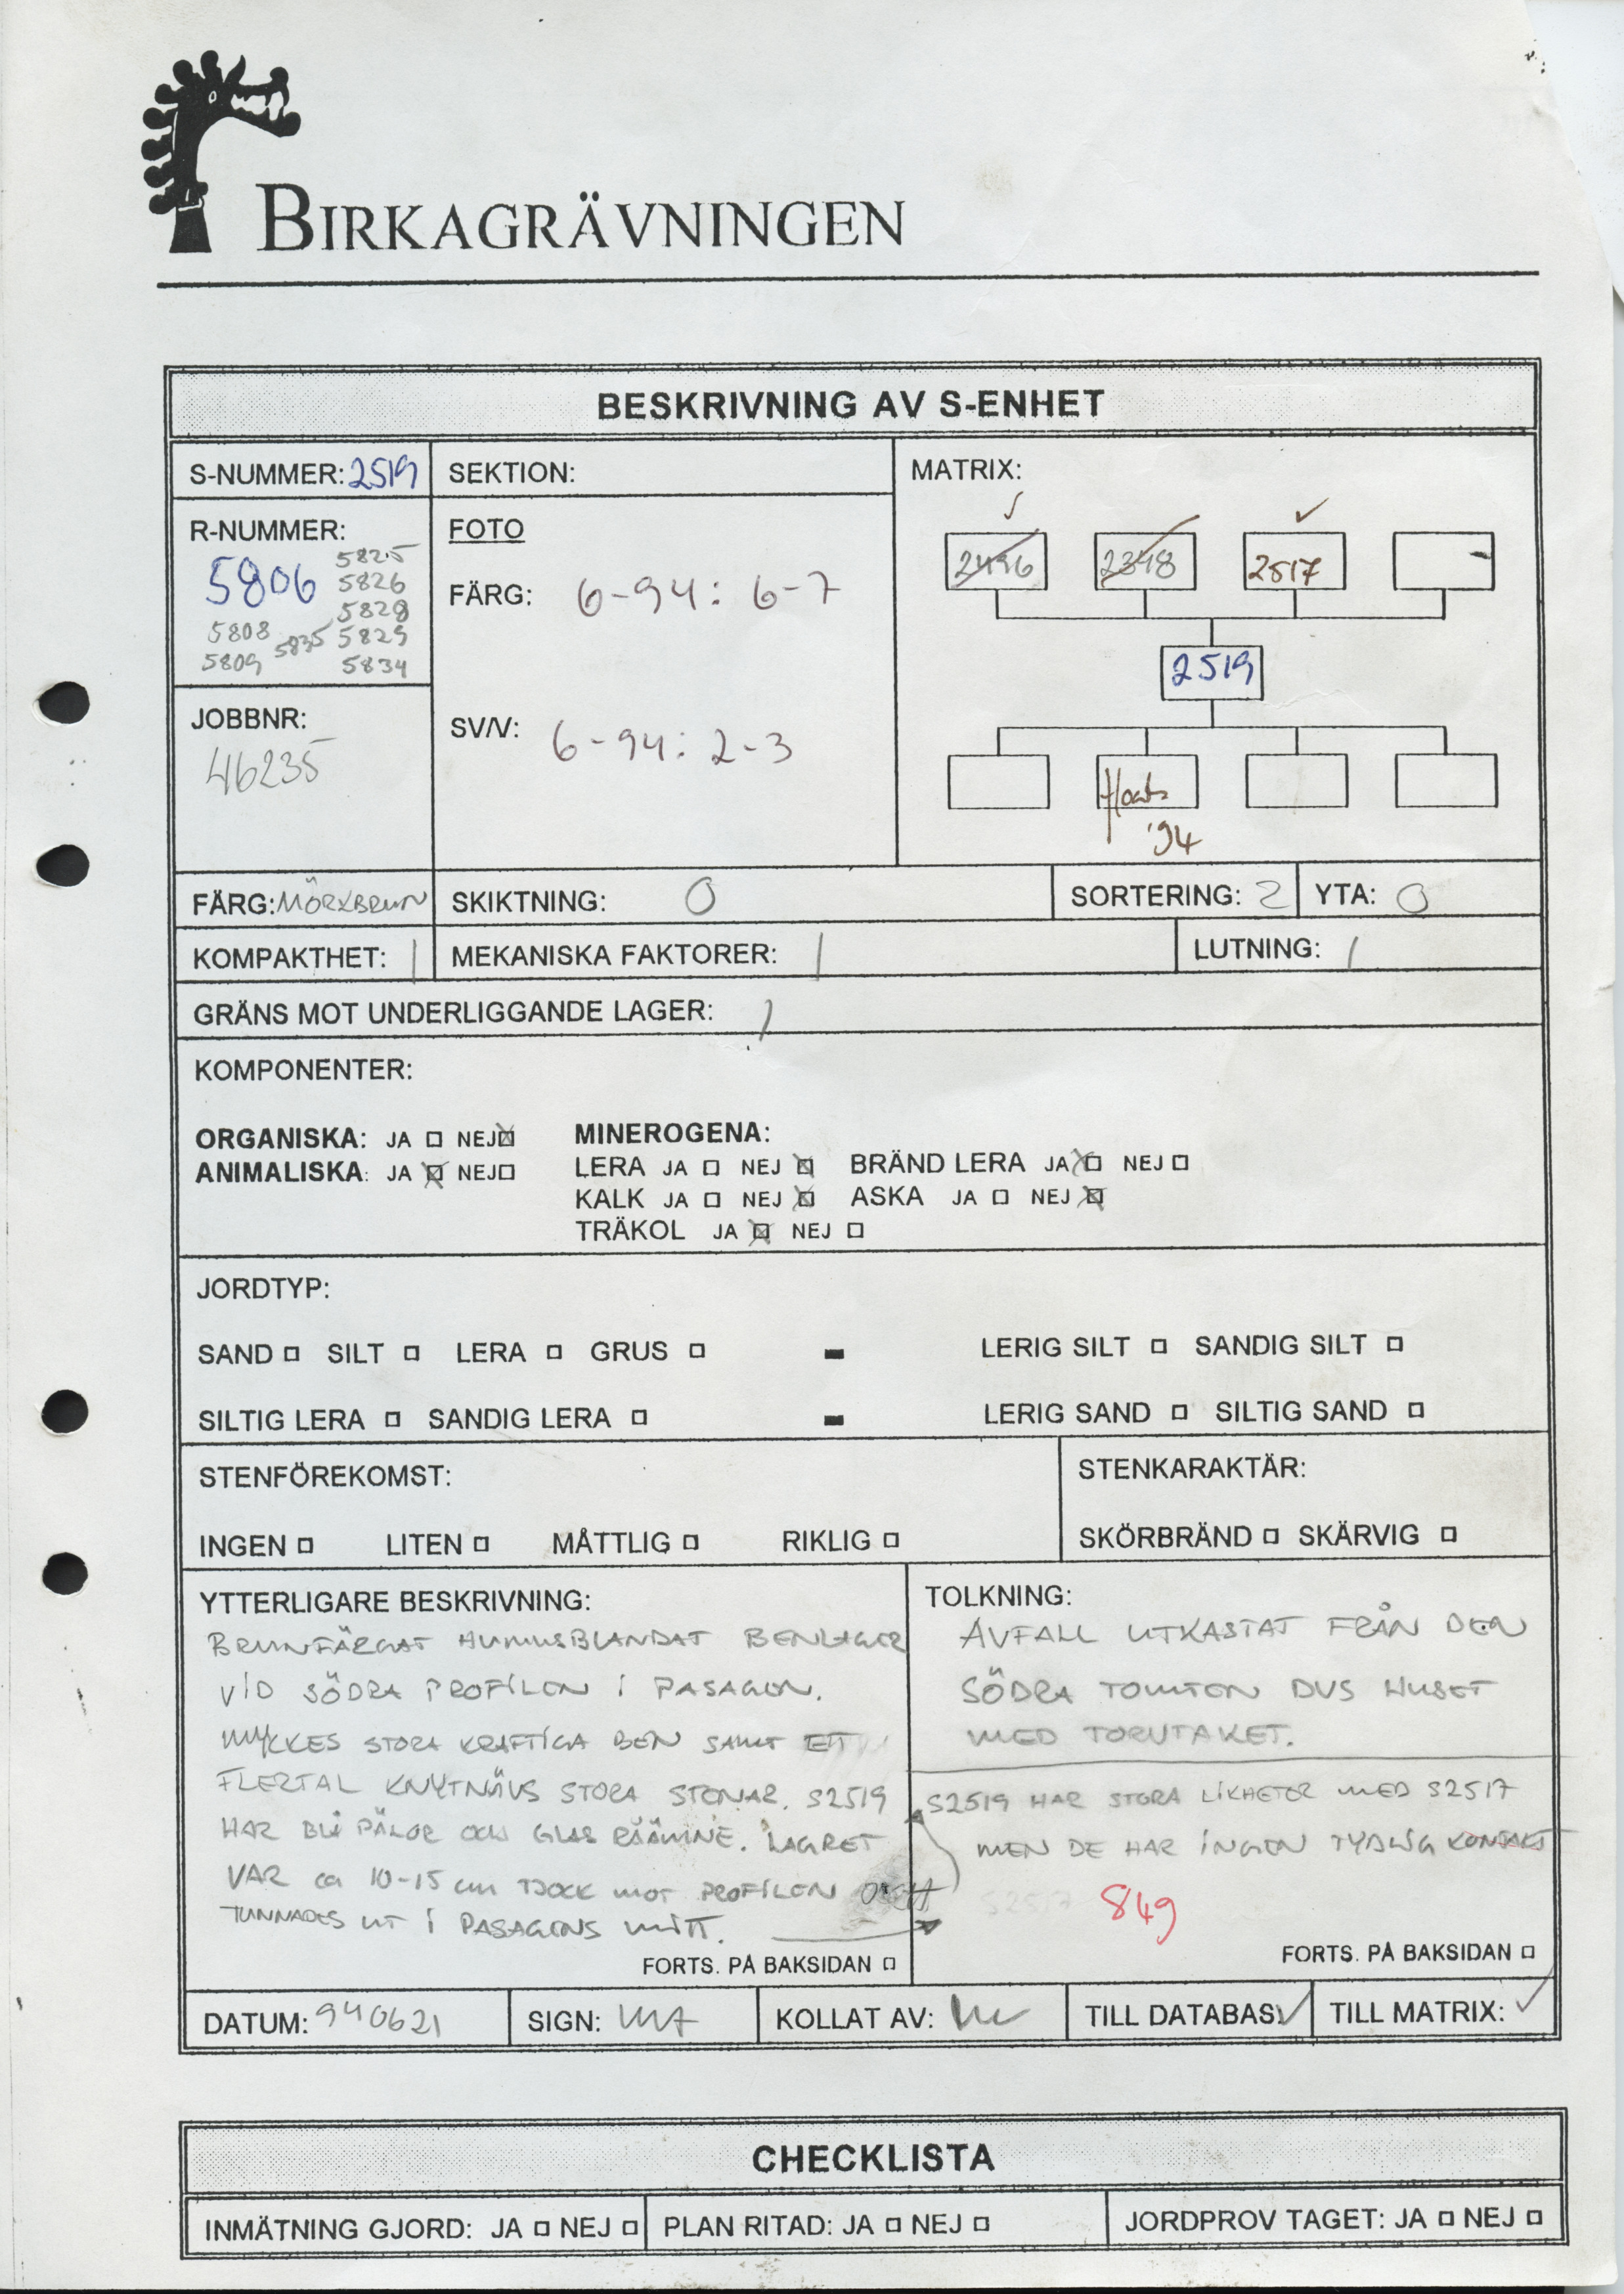 BIRKAGRÄVNINGEN
BESKRIVNING AV S-ENHET
S-NUMMER: 2519
SEKTION:
MATRIX:
R-NUMMER:
5806
5825
5826
5828
5808 5835 5829
5809 5834
FOTO
FÄRG: 6-94: 6-7
SV/V: 6-94: 2-3
2496 2348 2517 -
2519
'94
JOBBNR:
46235
FÄRG: MÖRKBRUN SKIKTNING: 0 SORTERING: 2 YTA: 0
KOMPAKTHET: 1 MEKANISKA FAKTORER: 1 LUTNING: 1
GRÄNS MOT UNDERLIGGANDE LAGER: 1
KOMPONENTER:
ORGANISKA: JA □ NEJ ☒ MINEROGENA:
ANIMALISKA: JA ☒ NEJ □ LERA JA □ NEJ ☒ BRÄND LERA JA ☒ NEJ □
KALK JA □ NEJ ☒ ASKA JA □ NEJ ☒
TRÄKOL JA ☒ NEJ □
JORDTYP:
SAND □ SILT □ LERA □ GRUS □ - LERIG SILT □ SANDIG SILT □
SILTIG LERA □ SANDIG LERA □ - LERIG SAND □ SILTIG SAND □
STENFÖREKOMST: STENKARAKTÄR:
INGEN □ LITEN □ MÅTTLIG □ RIKLIG □ SKÖRBRÄND □ SKÄRVIG □
YTTERLIGARE BESKRIVNING:
BRUNFÄRGAT HUMUSBLANDAT BENLAGER
VID SÖDRA PROFILEN I PASAGEN.
MYKKES STORA KRAFTIGA BEN SAMT ETT
FLERTAL KNYTNÄVS STORA STENAR. S2519
HAR BLÅ PÄLOR OCH GLAS RÄÄMNE. LAGRET
VAR ca 10-15 cm TJOCK MOT PROFILEN OCH
TUNNADES UT I PASAGENS MITT.
FORTS. PÅ BAKSIDAN □
TOLKNING:
AVFALL UTKASTAT FRÅN DEN
SÖDRA TOMTEN DVS HUSET
MED TORVTAKET.
S2519 HAR STORA LIKHETER MED S2517
MEN DE HAR INGEN TYDLIG KONTAKT
S2517 849
FORTS. PÅ BAKSIDAN □
DATUM: 940621 SIGN: KOLLAT AV: TILL DATABAS: ✓ TILL MATRIX: ✓
CHECKLISTA
INMÄTNING GJORD: JA □ NEJ □ PLAN RITAD: JA □ NEJ □ JORDPROV TAGET: JA □ NEJ □